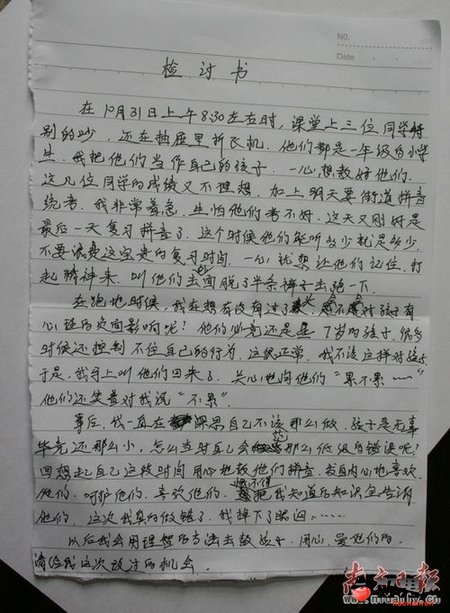 NO.
Date
检讨书
在10月31日上午8:30左右时，课堂上三位同学特
别的吵，还在抽屉里折飞机。他们都是一年级的小学
生，我把他们当作自己的孩子，一心想教好他们。
这几位同学的成绩又不理想，加上明天要街道拼音
统考，我非常着急，生怕他们考不好。这天又刚好是
最后一天复习拼音了，这个时候他们能听多少就是多少
不要浪费这宝贵的复习时间。一心就想让他们记住，打
起精神来，叫他们出去脱了半条裤子去跑一下。
在跑的时候，我在想有没有过了，会不会对孩子有
心理的负面影响呢？他们必竟还是 7岁的孩子，很多
时候还控制不住自己的行为，这很正常，我不该这样对孩子
于是，我马上叫他们回来了。关心地问他们“累不累”
他们还笑着对我说“不累”。
事后，我一直在深思自己不该那么做，孩子是无辜
毕竟还那么小，怎么当时自己会犯那么低级的错误呢？
回想起自己这段时间用心地教他们拼音，发自内心地喜欢
他们，呵护他们，喜欢他们，恨不得把我知道的知识全告诉
他们，这次我真的做错了，我掉下了眼泪……
以后我会用理智的方法去教孩子，用心爱他们的，
请给我这次改过的机会。
南方日报